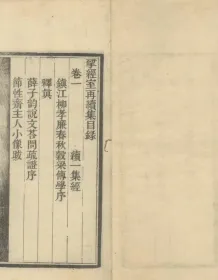 揅經室再續集目錄
卷一　續一集經
鎮江柳孝廉春秋穀梁傳學序
釋鎮
薛子韵說文荅問疏證序
節性齋主人小像跋